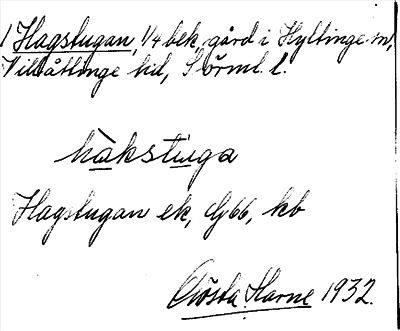 1 Hagstugan, 1/4 bek. gård i Hyltinge sn,
Villåttinge hd, Sörml. l.
hàkstuga
Hagstugan ek, Gj66, kb
Gösta Harne 1932.